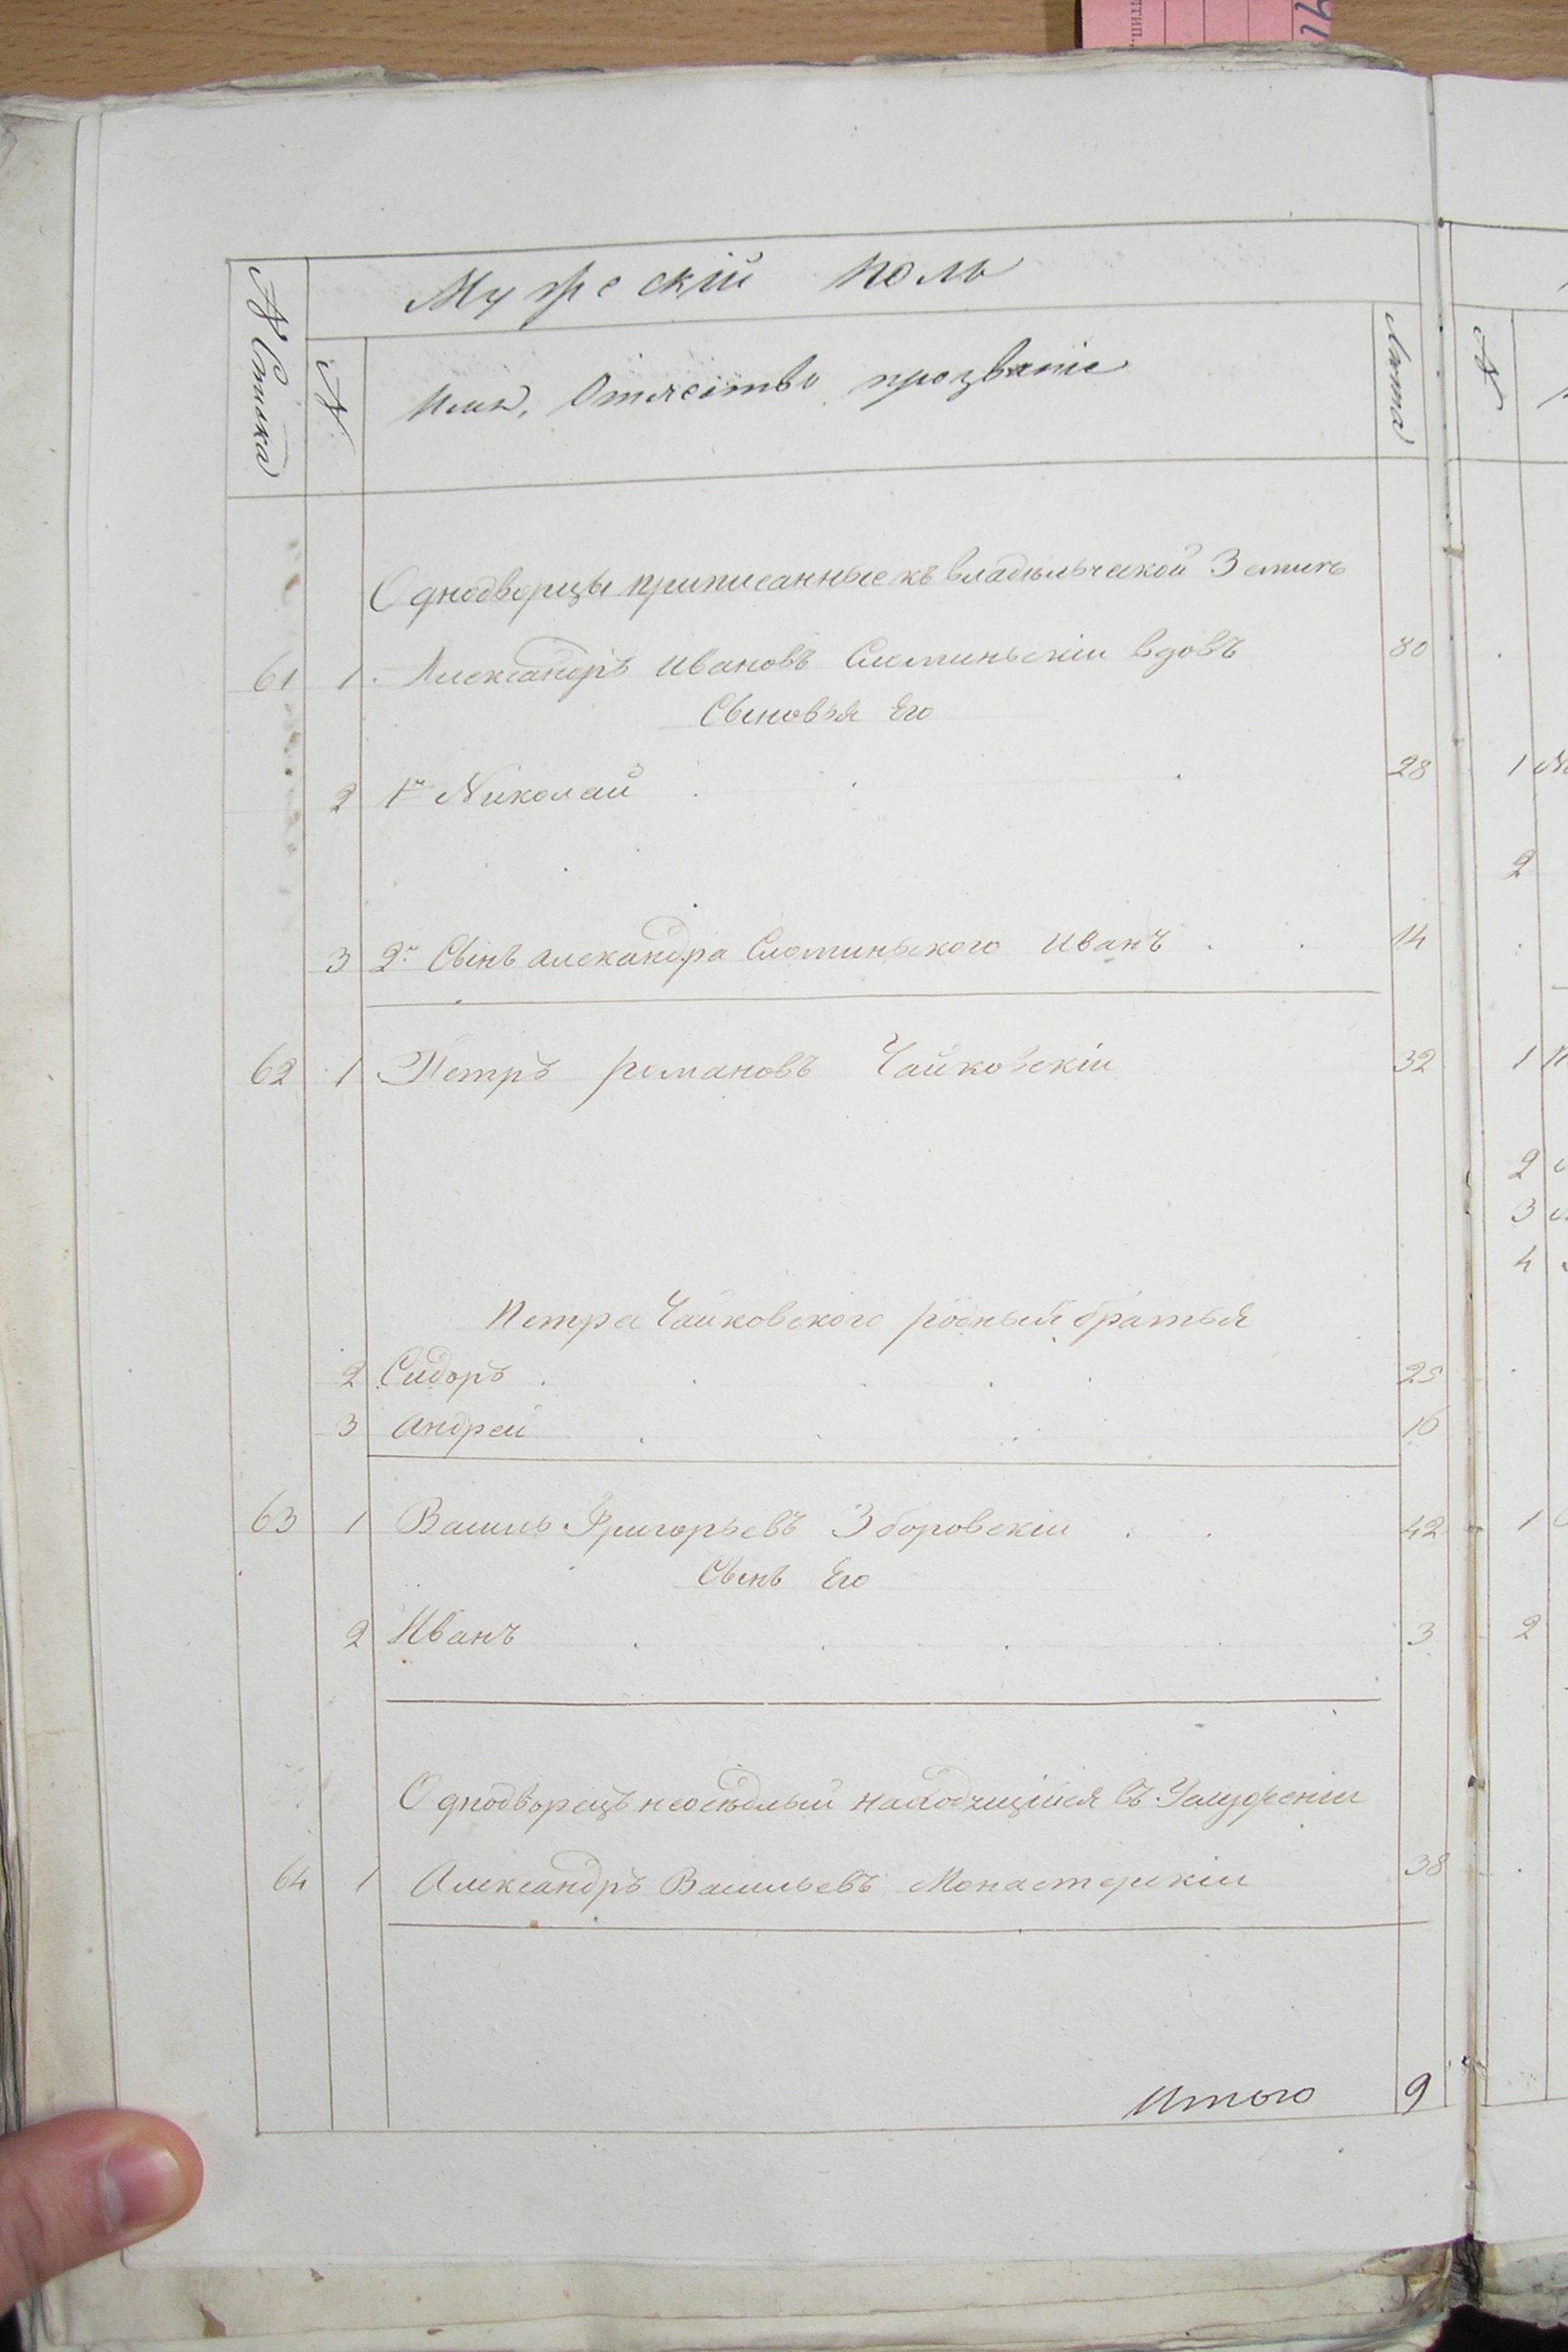 Мужескій полъ
№ Списка
№
Имя, Отчество прозваніе
Лѣта
№
Однодворцы приписанные къ владѣльческой Землѣ
61 1 Александръ Ивановъ вдовъ 80
Сыновья Его
2 1й Николай 28
3 2й Сынъ Александра Иванъ 14
62 1 Петръ Романовъ Чайковскіи 32
Петра Чайковского родный братья
2 Сидоръ 25
3 Андрей 16
63 1 Василь Григорьевъ Зборовскіи 42
Сынъ Его
2 Иванъ 3
Однодворецъ неосѣдлый находящійся въ
64 1 Александръ Васильевъ Монастерскіи 38
Итого 9
1
2
1
2
3
4
1
2